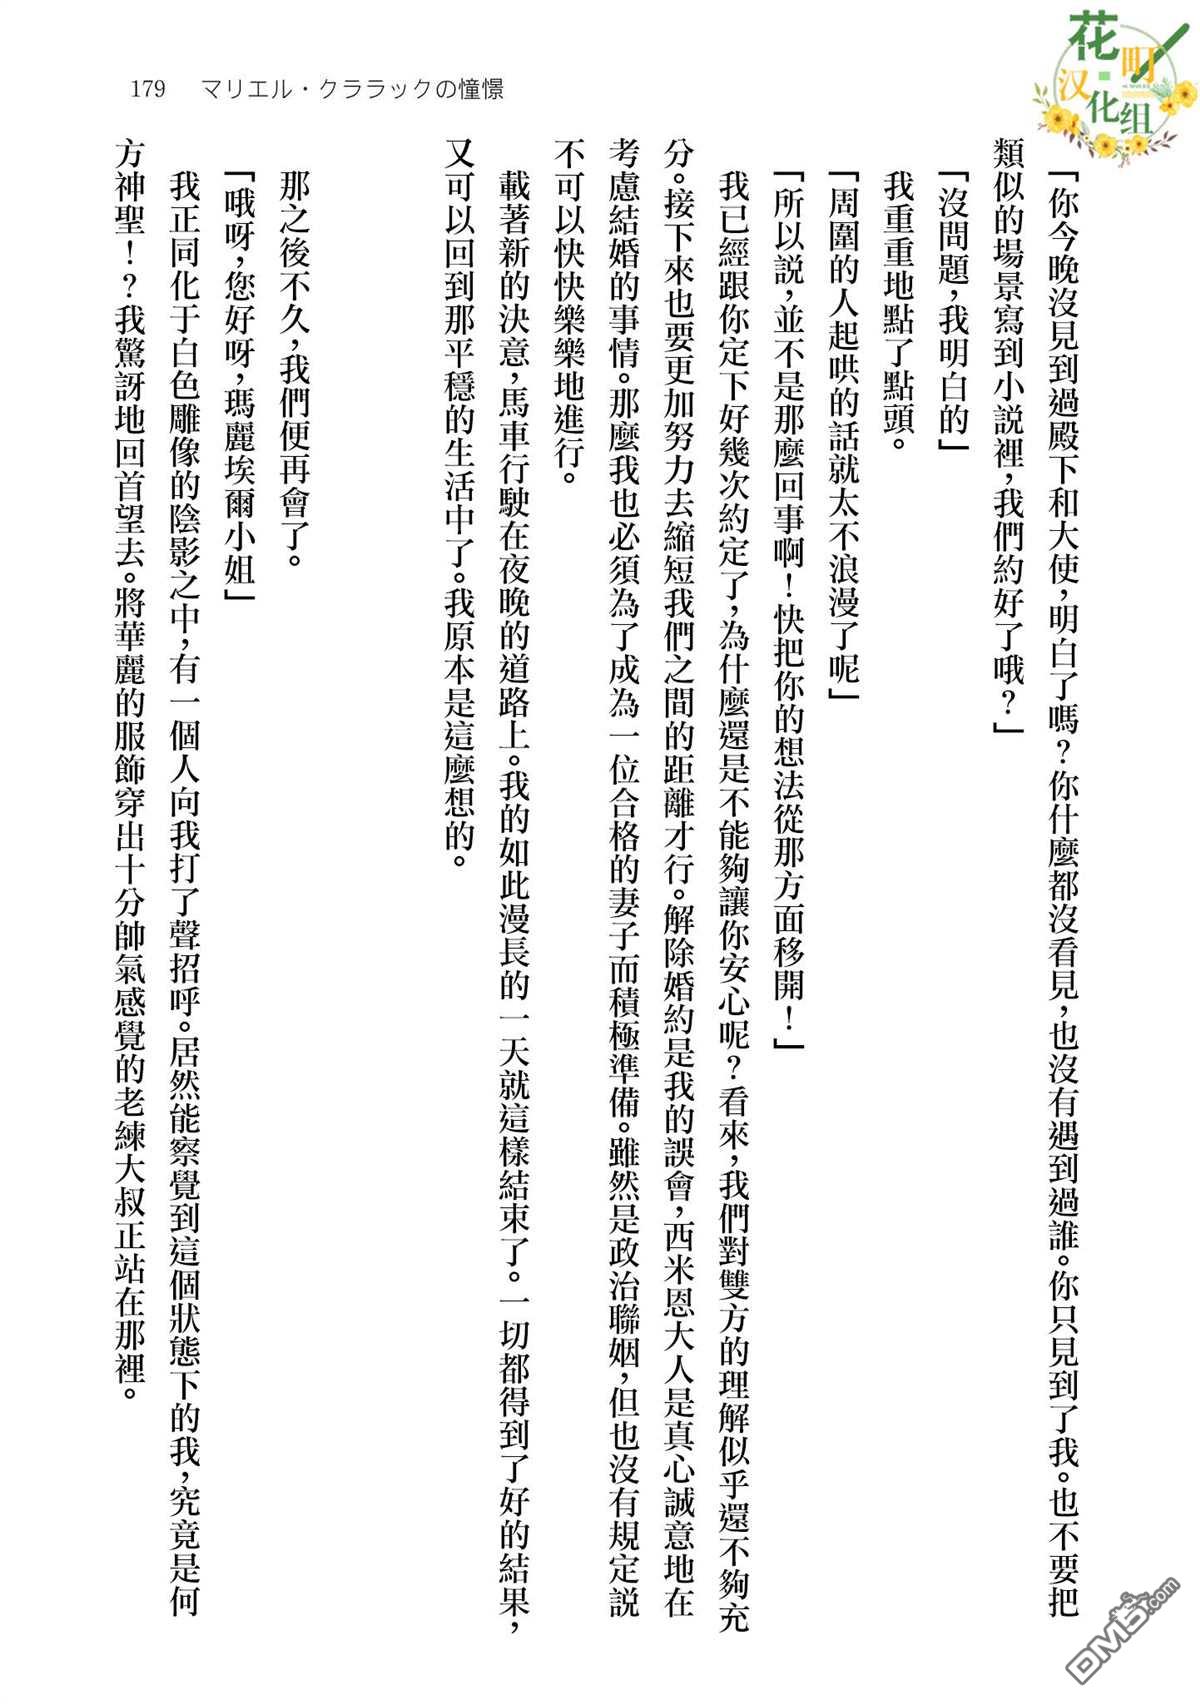 179　マリエル・クララックの憧憬
花町
汉化组
「你今晚沒見到過殿下和大使，明白了嗎？你什麼都沒看見，也沒有遇到過誰。你只見到了我。也不要把
類似的場景寫到小説裡，我們約好了哦？」
「沒問題，我明白的」
我重重地點了點頭。
「周圍的人起哄的話就太不浪漫了呢」
「所以説，並不是那麼回事啊！快把你的想法從那方面移開！」
我已經跟你定下好幾次約定了，為什麼還是不能夠讓你安心呢？看來，我們對雙方的理解似乎還不夠充
分。接下來也要更加努力去縮短我們之間的距離才行。解除婚約是我的誤會，西米恩大人是真心誠意地在
考慮結婚的事情。那麼我也必須為了成為一位合格的妻子而積極準備。雖然是政治聯姻，但也沒有規定説
不可以快快樂樂地進行。
載著新的決意，馬車行駛在夜晚的道路上。我的如此漫長的一天就這樣結束了。一切都得到了好的結果，
又可以回到那平穩的生活中了。我原本是這麼想的。
那之後不久，我們便再會了。
「哦呀，您好呀，瑪麗埃爾小姐」
我正同化于白色雕像的陰影之中，有一個人向我打了聲招呼。居然能察覺到這個狀態下的我，究竟是何
方神聖！？我驚訝地回首望去。將華麗的服飾穿出十分帥氣感覺的老練大叔正站在那裡。
DM5.com